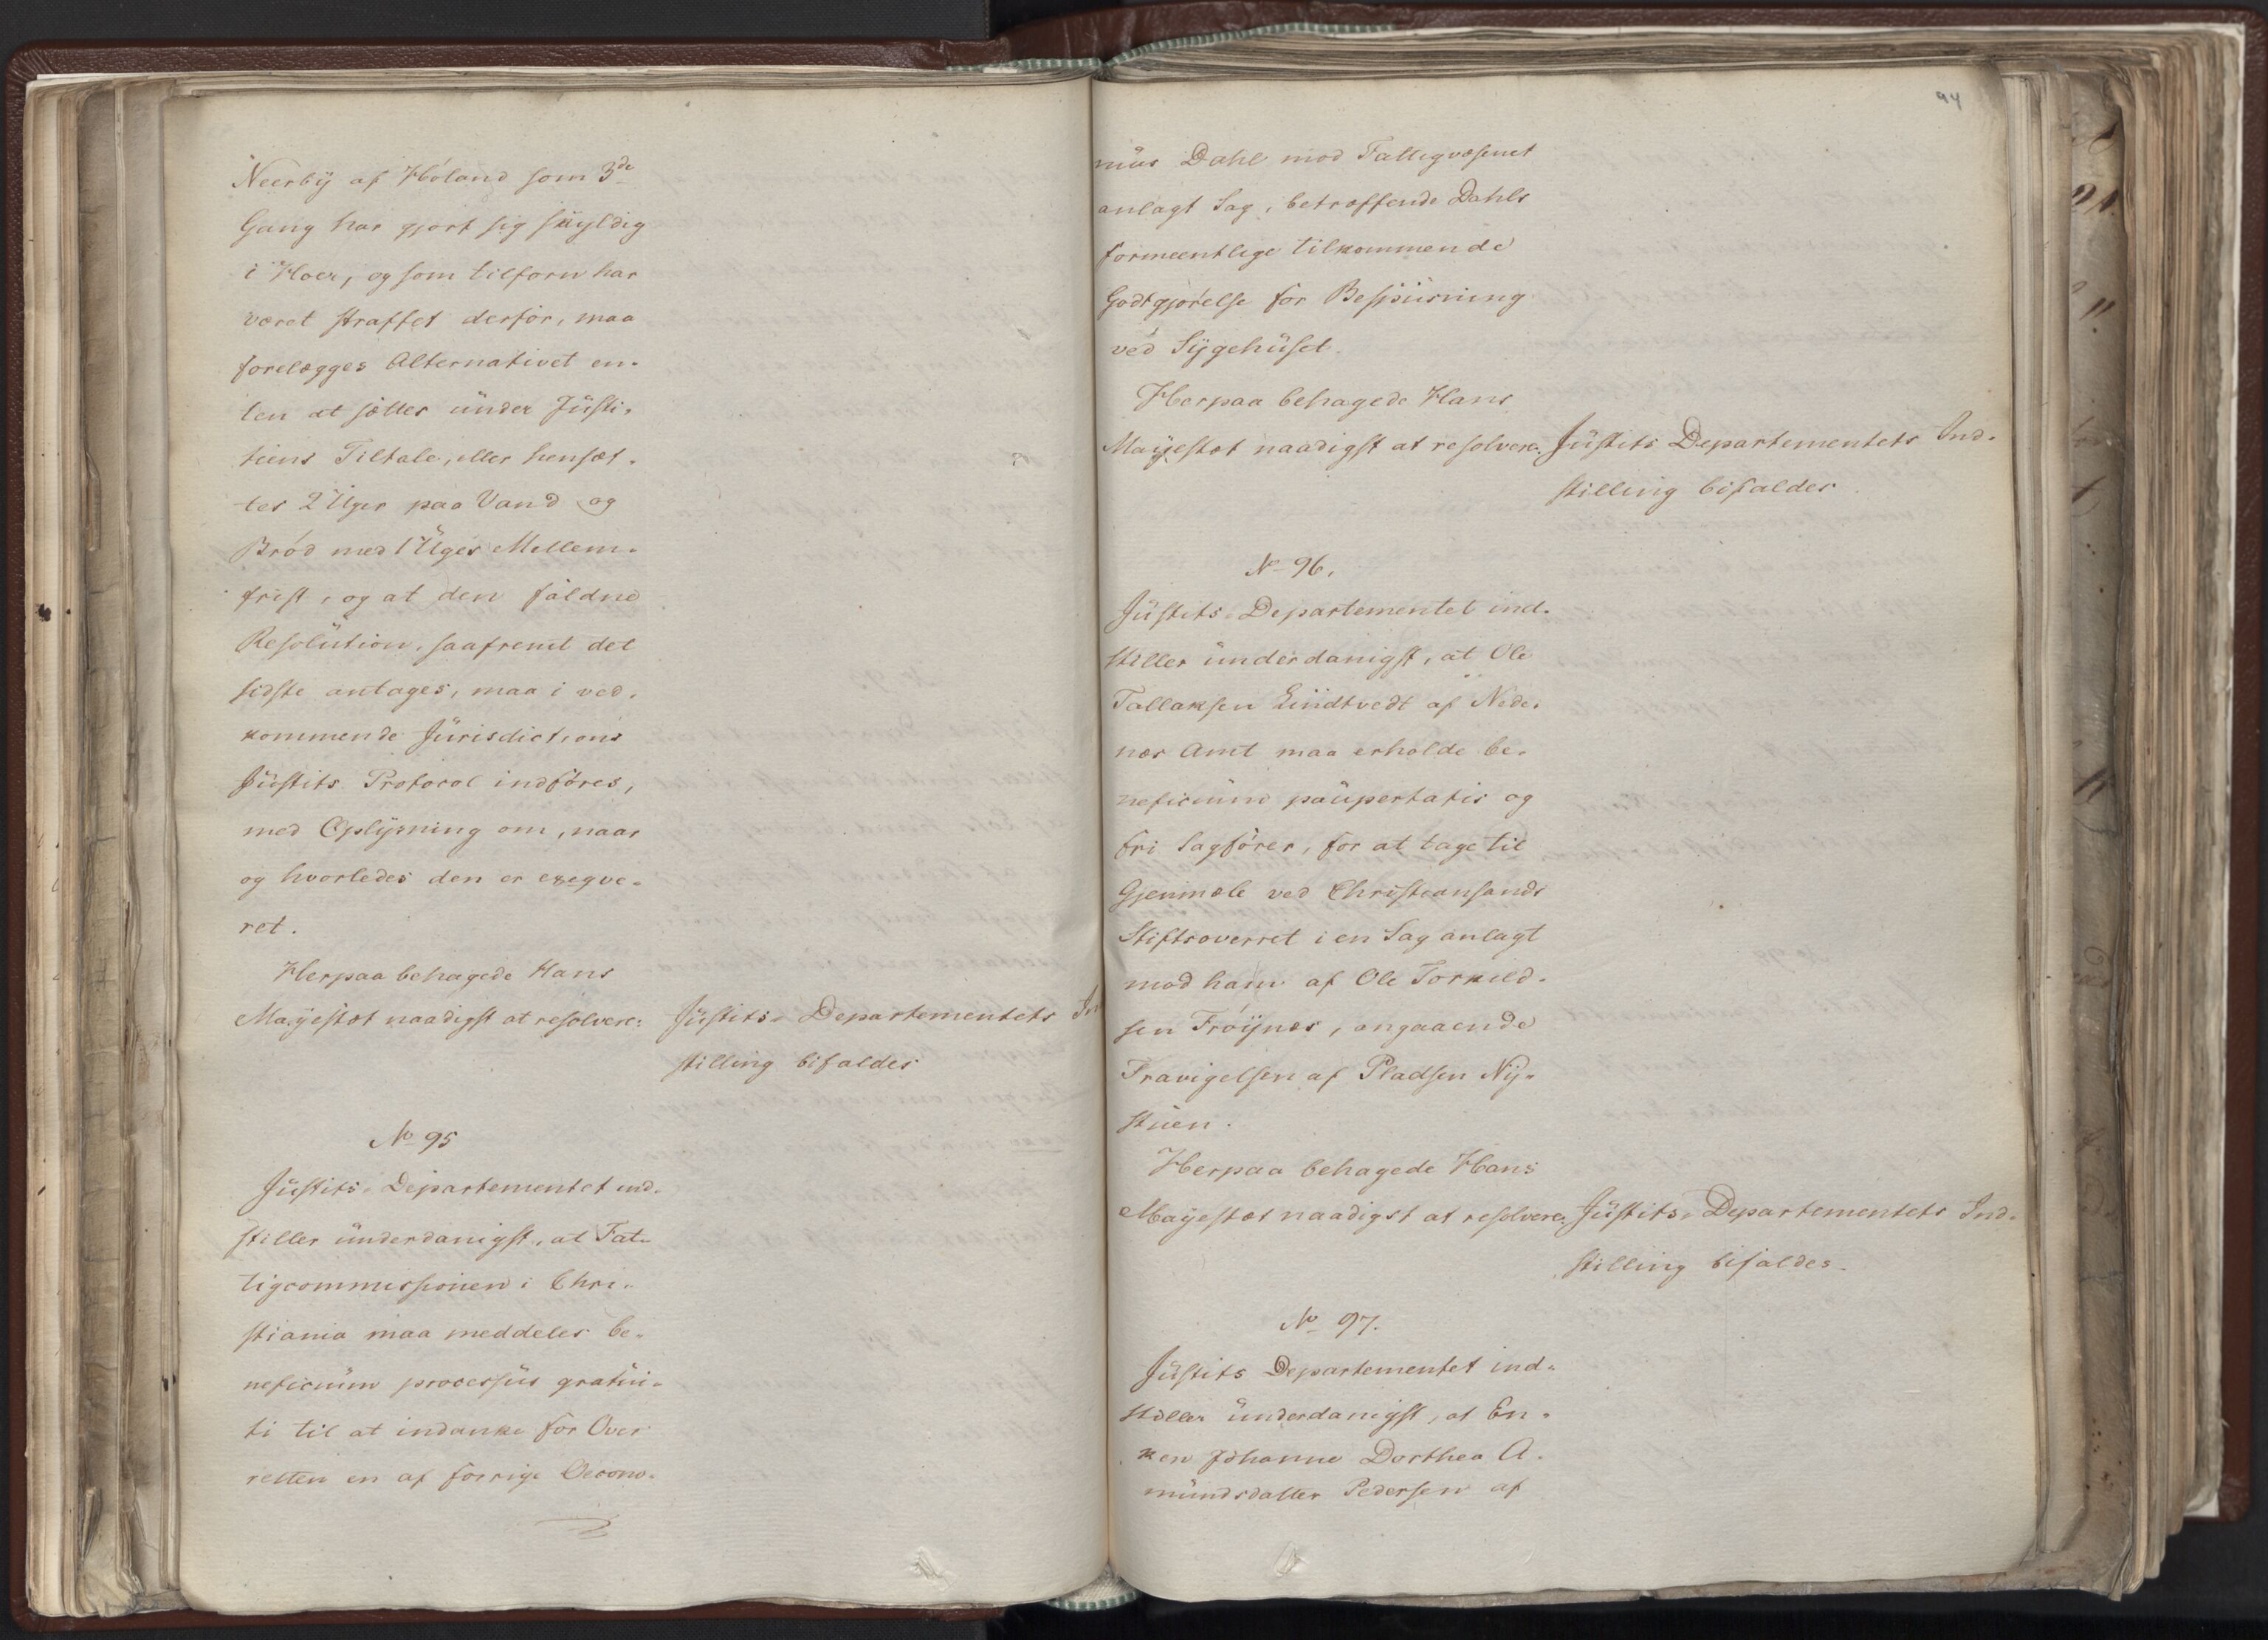 Neerbÿ af Höland som 3de
Gang har gjort sig skÿldig
i Hoer, og som tilforn har
været straffet derfor, maa
forelægges Alternativet en-
ten at sættes ünder Jüsti-
tiens Tiltale, eller hensæt-
tes 2 Üger paa Vand og
Bröd med 1 Üges Mellem-
frist, og at den faldne
Resolütion, saafremt det
sidste antages, maa i ved-
kommende Jürisdictions
Jüstits Protocol indföres,
med Oplÿsning om, naar
og hvorledes den er exeqve-
ret.
Herpaa behagede Hans
Mayestæt naadigst at resolvere: Jüstits-Departementets In
stilling bifaldes
No 95
Jüstits-Departementet ind-
stiller ünderdanigst, at Fat-
tigcommissionen i Chri-
stiania maa meddeles be-
neficiüm processüs gratüi-
ti til at indanke for Over
retten en af forrige Oecono-
94
müs Dahl mod Fattigvæsenet
anlagt Sag, betræffende Dahls
formeentlige tilkommende
Godtgjörelse for Bespiisning
ved Sÿgehüset.
Herpaa behagede Hans
Mayestæt naadigst at resolvere: Jüstits Departementets Ind-
stilling bifaldes.
No 96.
Jüstits-Departementet ind-
stiller ünderdanigst, at Ole
Tallaksen Lündtvedt af Nede-
næs Amt maa erholde be-
neficiüm paüpertatis og
fri Sagförer, for at tage til
Gjenmæle ved Christiansands
Stiftsoverret i en Sag anlagt
mod ham af Ole Torkild-
sen Fröÿnæs, angaaende
Fravigelsen af Pladsen Nÿ-
stüen.
Herpaa behagede Hans
Mayestæt naadigst at resolvere: Jüstits-Departementets Ind-
stilling bifaldes.
No 97.
Jüstits Departementet ind-
stiller ünderdanigst, at En-
ken Johanne Dorthea A-
mündsdatter Pedersen af